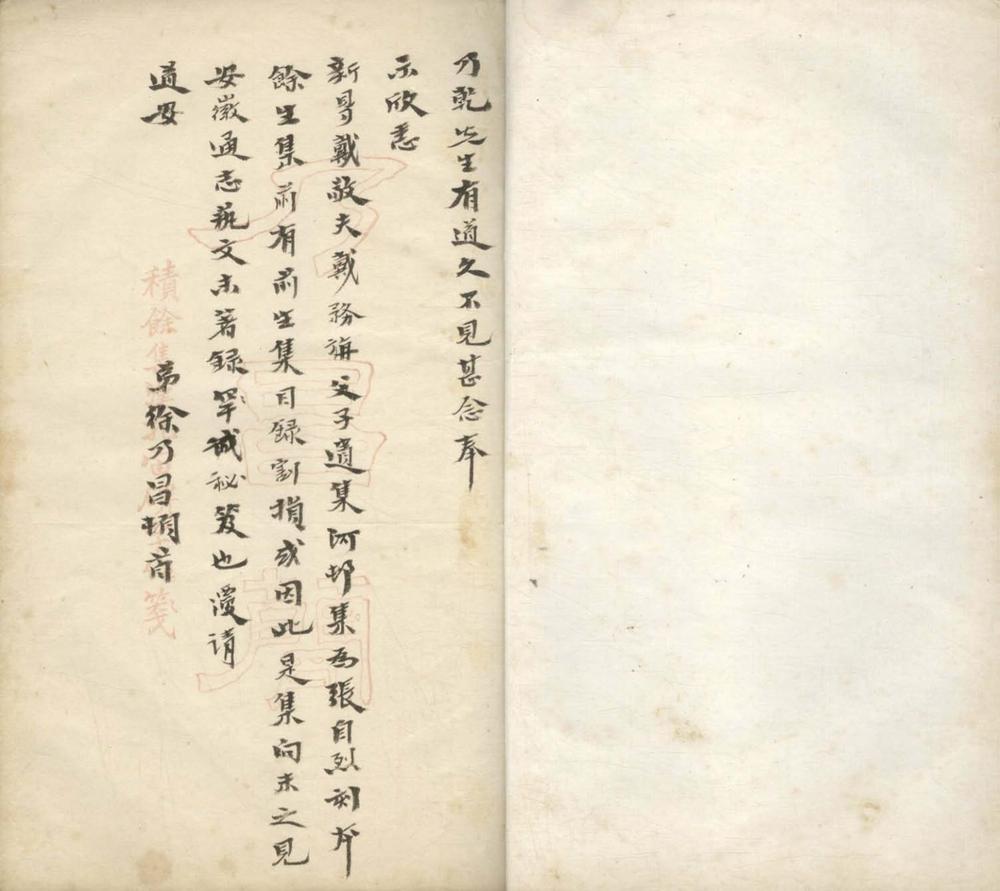 乃乾先生有道久不見甚念奉
示欣悉
新得戴敬夫戴務旃父子遺集河邨集為張自烈刻本
餘生集前有前生集目録割損或因此是集向未之見
安徽通志藝文未著録罕誠秘笈也漫請
道安
弟徐乃昌頓首
積餘集
箋